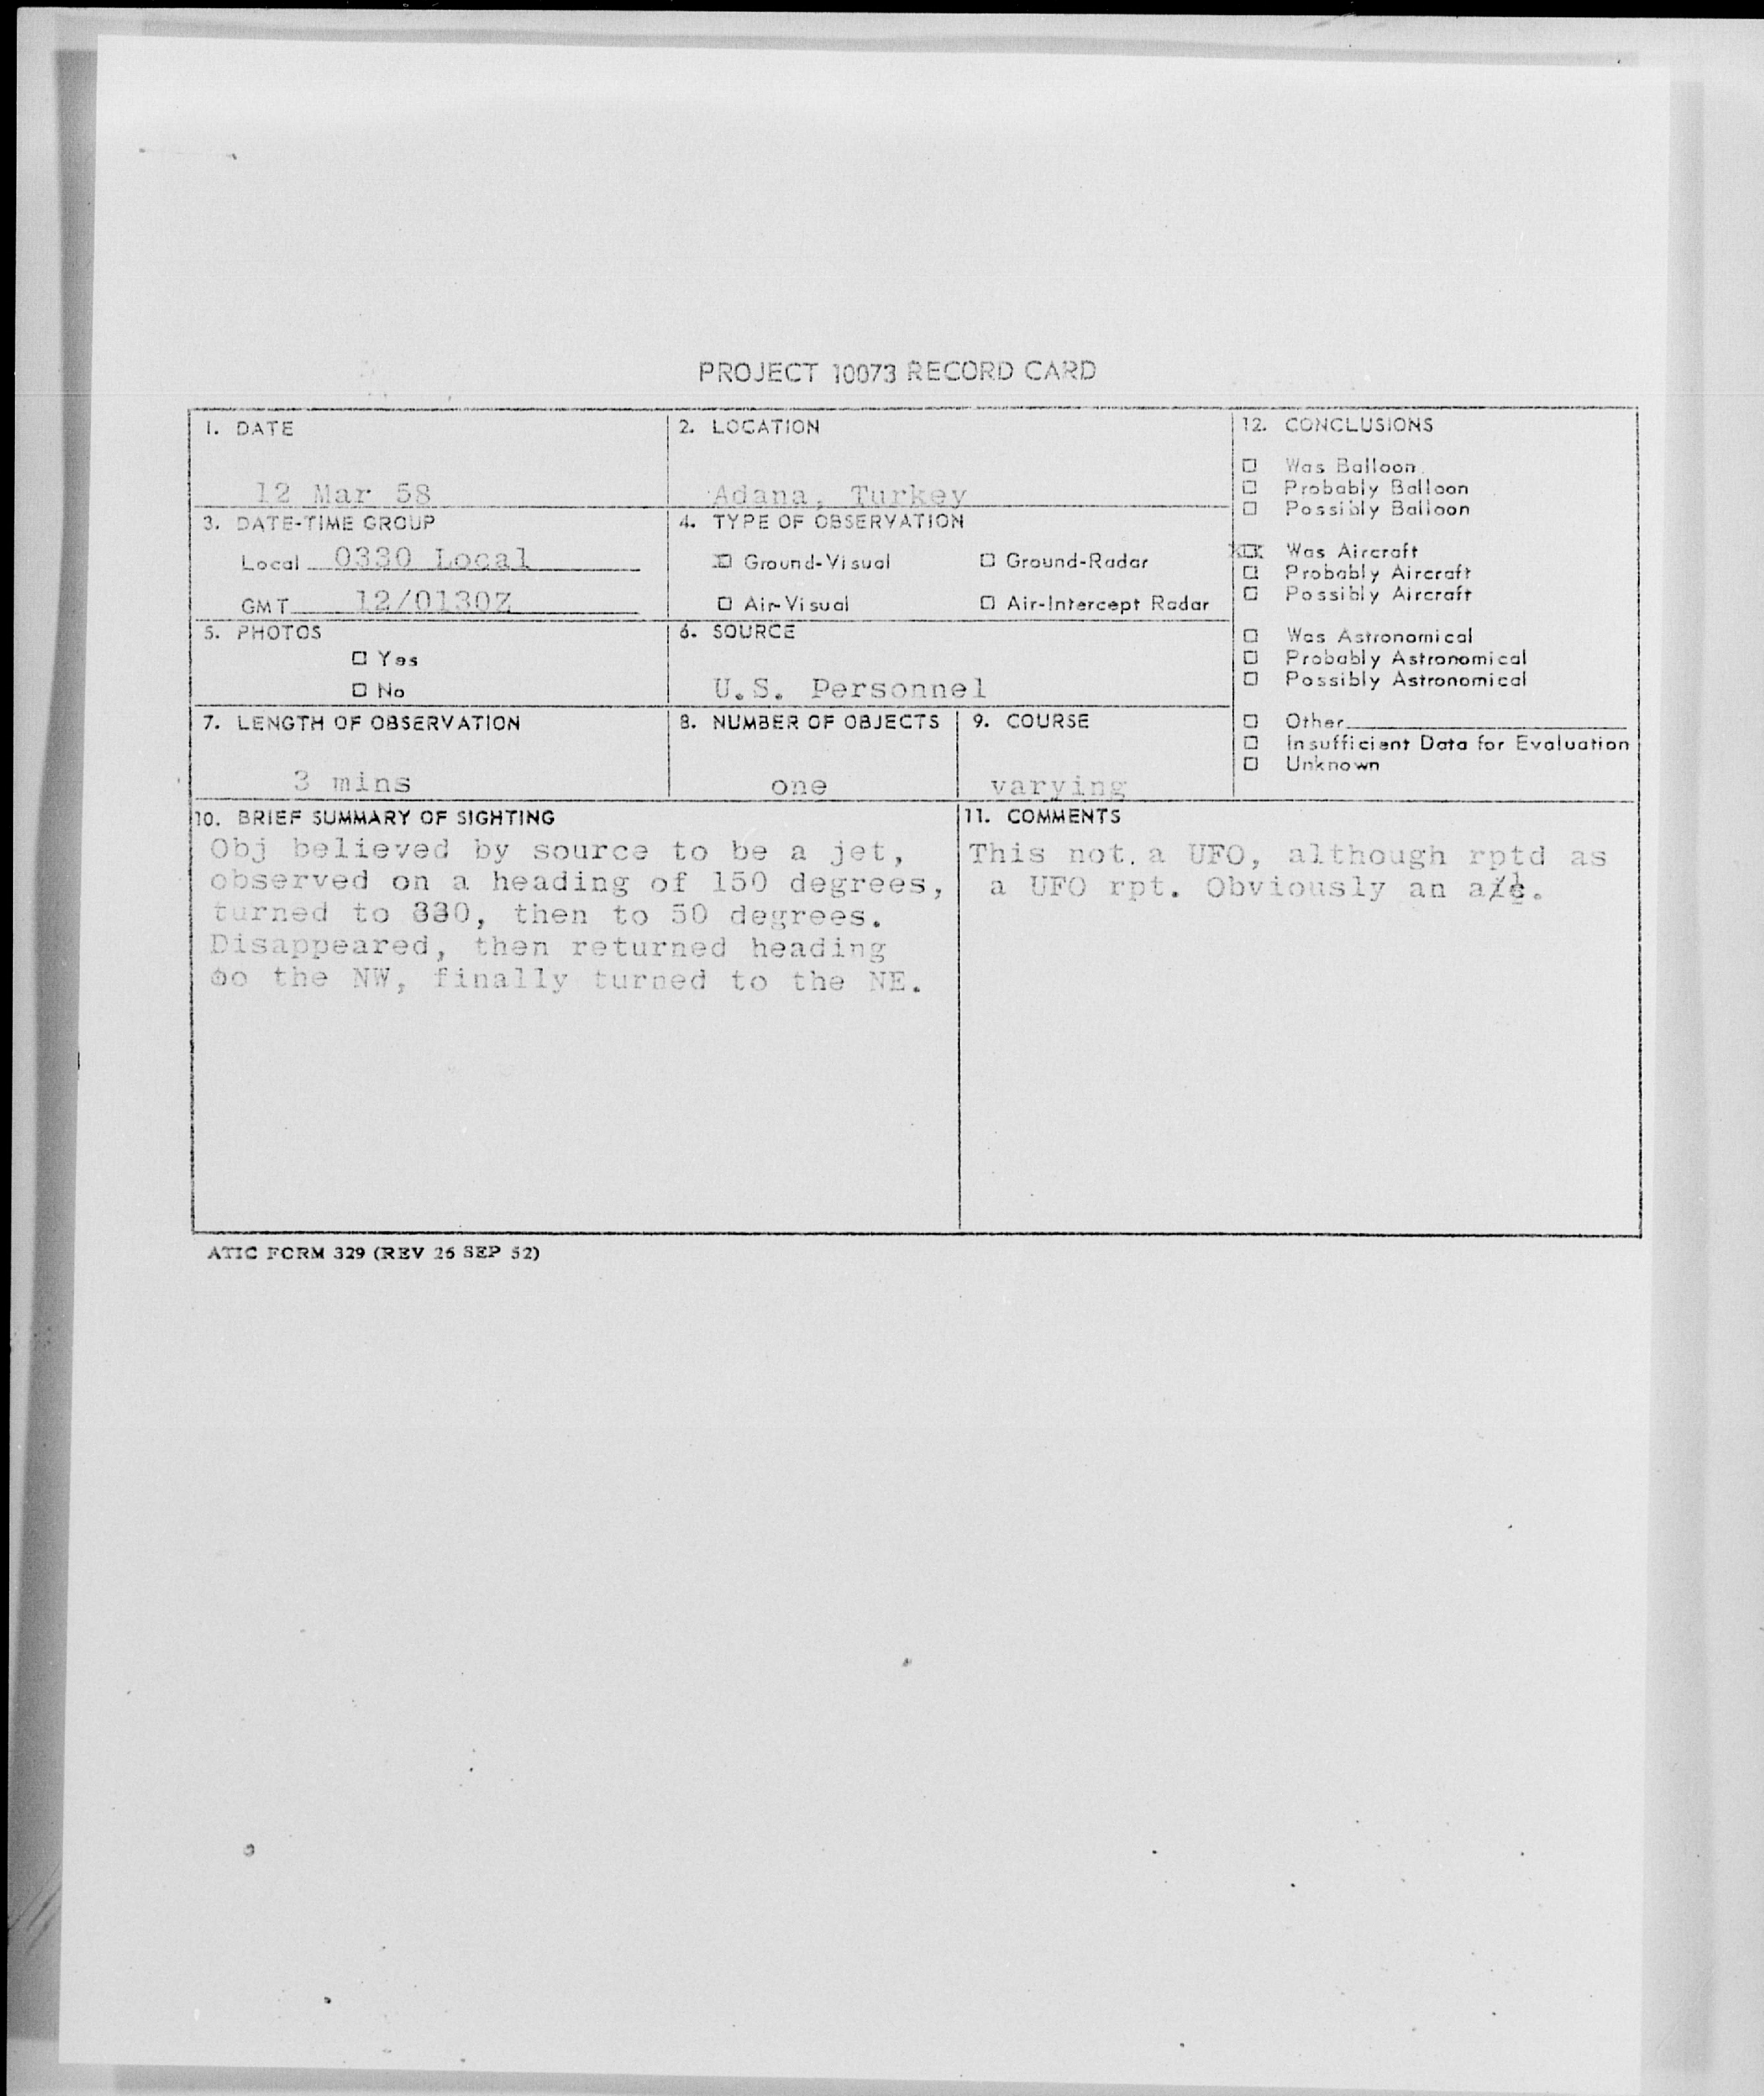 PROJECT 10073 RECORD CARD
1. DATE
12 Mar 58
2. LOCATION
Adana, Turkey
3. DATE-TIME GROUP
Local 0330 Local
GMT 12/0130Z
4. TYPE OF OBSERVATION
☒ Ground-Visual ☐ Ground-Radar
☐ Air-Visual ☐ Air-Intercept Radar
5. PHOTOS
☐ Yes
☐ No
6. SOURCE
U.S. Personnel
7. LENGTH OF OBSERVATION
3 mins
8. NUMBER OF OBJECTS
one
9. COURSE
varying
10. BRIEF SUMMARY OF SIGHTING
Obj believed by source to be a jet,
observed on a heading of 150 degrees,
turned to 330, then to 50 degrees.
Disappeared, then returned heading
to the NW, finally turned to the NE.
11. COMMENTS
This not a UFO, although rptd as
a UFO rpt. Obviously an a/c.
12. CONCLUSIONS
☐ Was Balloon
☐ Probably Balloon
☐ Possibly Balloon
☒ Was Aircraft
☐ Probably Aircraft
☐ Possibly Aircraft
☐ Was Astronomical
☐ Probably Astronomical
☐ Possibly Astronomical
☐ Other
☐ Insufficient Data for Evaluation
☐ Unknown
ATIC FORM 329 (REV 26 SEP 52)